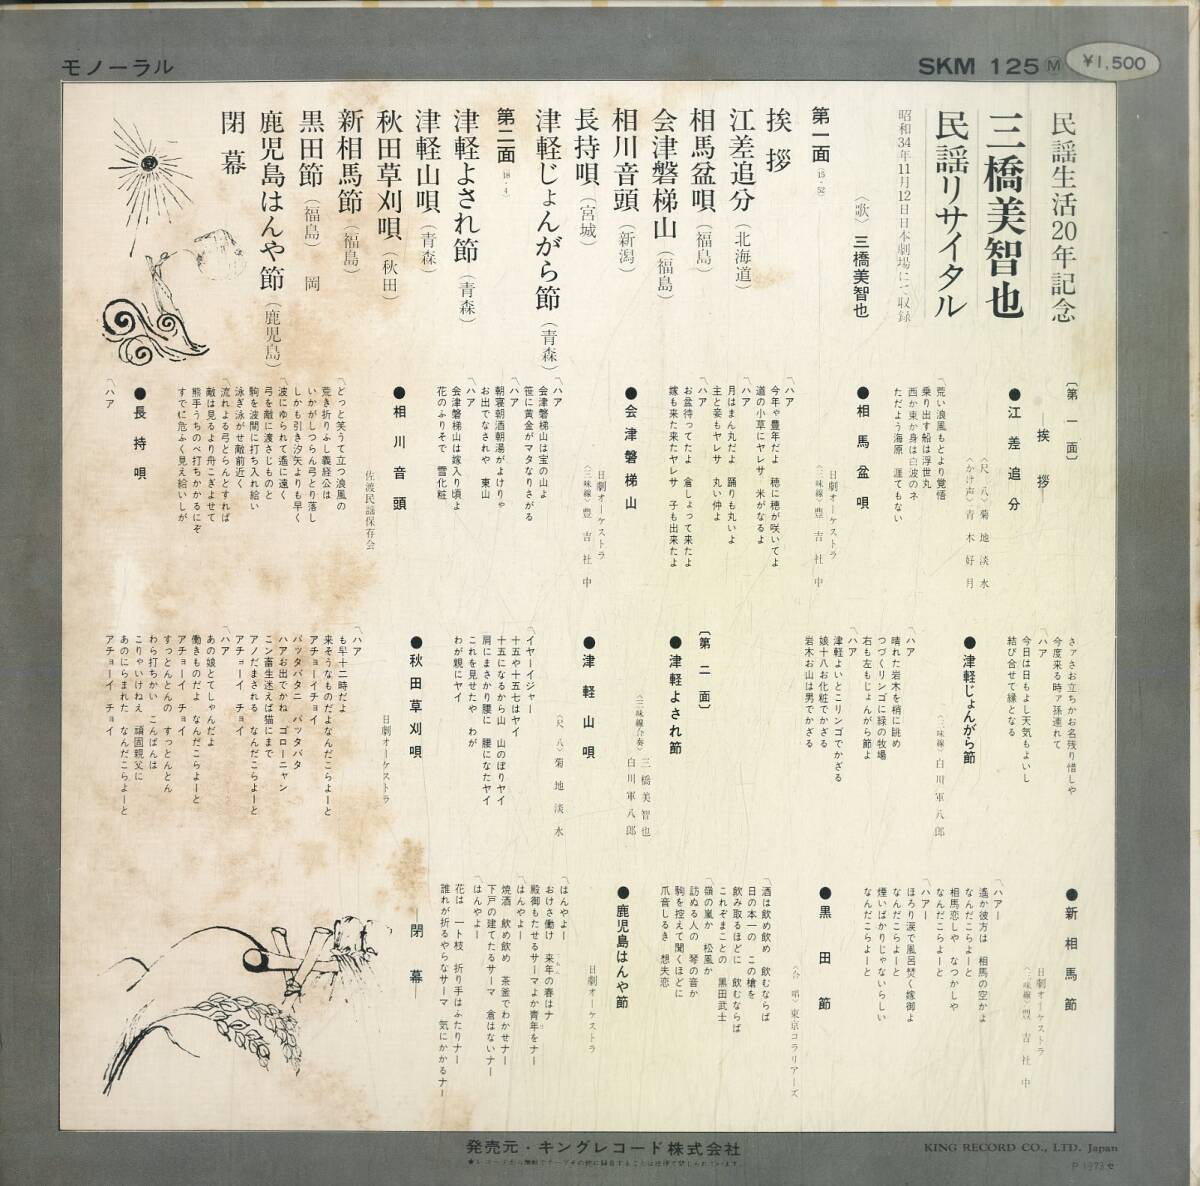 モノーラル
SKM 125 Ⓜ
¥1,500
民謡生活20年記念
三橋美智也
民謡リサイタル
昭和34年11月12日日本劇場にて収録
〈歌〉三橋美智也
第一面(15・52)
挨拶
江差追分(北海道)
相馬盆唄(福島)
会津磐梯山(福島)
相川音頭(新潟)
長持唄(宮城)
津軽じょんがら節(青森)
第二面(18・4)
津軽よされ節(青森)
津軽山唄(青森)
秋田草刈唄(秋田)
新相馬節(福島)
黒田節(福島) 岡
鹿児島はんや節(鹿児島)
閉幕
〔第一面〕
―挨拶―
●江差追分
〈尺八〉菊地淡水
〈かけ声〉青木好月
荒い浪風もとより覚悟
乗り出す船は浮世丸
西か東か身は白波のネ
ただよう海原 涯てもない
●相馬盆唄
日劇オーケストラ
〈三味線〉豊吉社中
ハア
今年ゃ豊年だよ 穂に穂が咲いてよ
道の小草にヤレサ 米がなるよ
ハア
月はまん丸だよ 踊りも丸いよ
主と妾もヤレサ 丸い仲よ
ハア
お盆待ってたよ 倉しょって来たよ
嫁も来た来たヤレサ 子も出来たよ
●会津磐梯山
日劇オーケストラ
〈三味線〉豊吉社中
ハア
会津磐梯山は宝の山よ
笹に黄金がマタなりさがる
ハア
朝寝朝酒朝湯がよけりゃ
お出でなされや 東山
ハア
会津磐梯山は嫁入り頃よ
花のふりそで 雪化粧
●相川音頭
佐渡民謡保存会
どっと笑うて立つ浪風の
荒き折りふし義経公は
いかがしつらん弓とり落し
しかも引き汐矢よりも早く
波にゆられて遙に遠く
弓を敵に渡さじものと
駒を波間に打ち入れ給い
泳ぎ泳がせ敵前近く
流れよる弓とらんとすれば
敵は見るより舟こぎよせて
熊手うちのべ打ちかかるにぞ
すでに危ふく見え給いしが
●長持唄
ハア
さァさお立ちかお名残り惜しや
今度来る時ァ孫連れて
ハア
今日は日もよし天気もよいし
結び合せて縁となる
●津軽じょんがら節
〈三味線〉白川軍八郎
ハア
晴れた岩木を梢に眺め
つづくリンゴに緑の牧場
右も左もじょんがら節よ
ハア
津軽よいとこリンゴでかざる
娘十八お化粧でかざる
岩木お山は男でかざる
〔第二面〕
●津軽よされ節
〈三味線合奏〉三橋美智也
白川軍八郎
●津軽山唄
〈尺八〉菊地淡水
イヤーイジャー
十五や十五七はヤイ
十五になるから山 山のぼりヤイ
肩にまさかり腰に 腰になたヤイ
これを見せたや わが
わが親にヤイ
●秋田草刈唄
日劇オーケストラ
ハア
も早十二時だよ
来そうなものだよなんだこらよーと
アチョーイチョイ
バッタバタニ バッタバタ
ハアお出でかね ゴローニャン
こン畜生迷えば猫にまで
アノだまされる なんだこらよーと
アチョーイ チョイ
ハア
あの娘とてしゃんだよ
働きものだよ なんだこらよーと
アチョーイ チョイ
すっとんとんの すっとんとん
わら打ちかい こんばんは
こりゃいけねえ 頑固親父に
あのにらまれた なんだこらよーと
アチョーイ チョイ
●新相馬節
日劇オーケストラ
〈三味線〉豊吉社中
ハアー
遙か彼方は 相馬の空かよ
なんだこらよーと
相馬恋しや なつかしや
なんだこらよーと
ハアー
ほろり涙で風呂焚く嫁御よ
なんだこらよーと
煙いばかりじゃないらしい
なんだこらよーと
●黒田節
〈合唱〉東京コラリアーズ
酒は飲め飲め 飲むならば
日の本一の この槍を
飲み取るほどに 飲むならば
これぞまことの 黒田武士
嶺の嵐か 松風か
訪ぬる人の 琴の音か
駒を控えて聞くほどに
爪音しるき 想夫恋
●鹿児島はんや節
日劇オーケストラ
はんやよー
おけさ働け 来年の春はナ
殿御もたせるサーマよか青年をナー
はんやよー
焼酒 飲め飲め 茶釜でわかせナー
下戸の建てたるサーマ 倉はないナー
はんやよー
花は 一ト枝 折り手はふたりナー
誰れが折るやらなサーマ 気にかかるナー
―閉幕―
発売元・キングレコード株式会社
KING RECORD CO., LTD. Japan
P 1973 セ